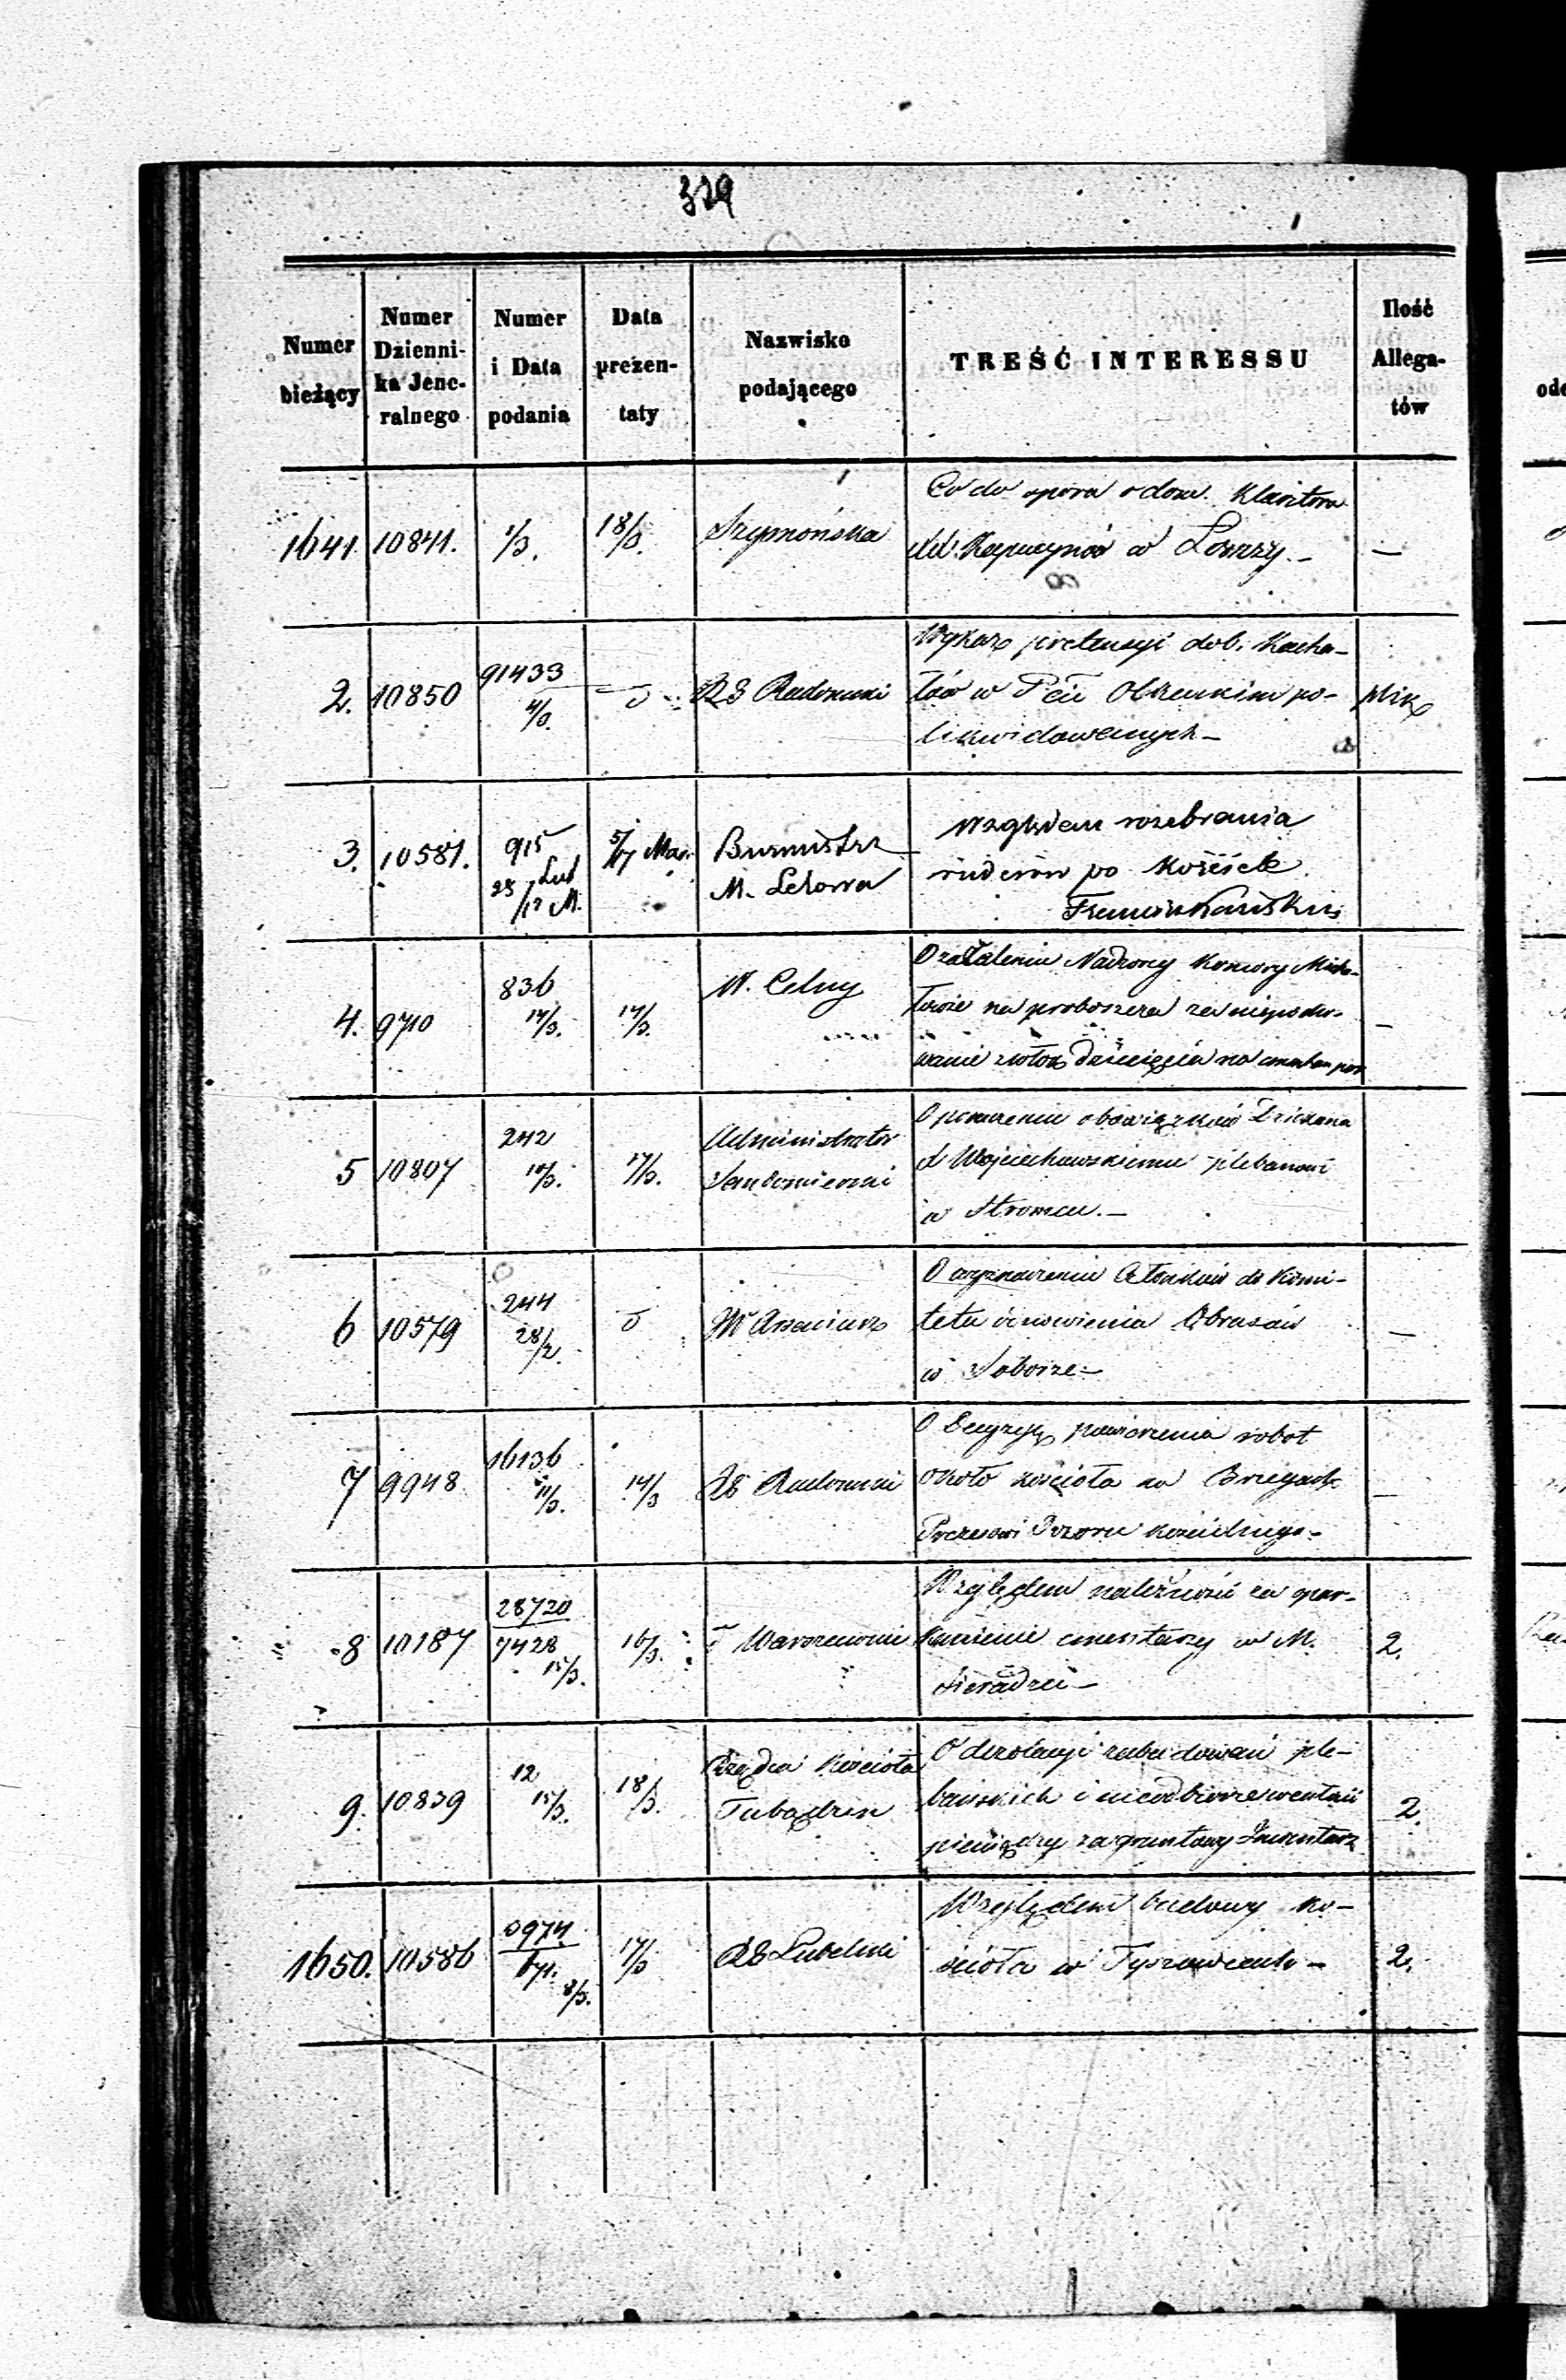 329
Numer bieżący
Numer Dzienni-
ka Jene-
ralnego
Numer
i Data
podania
Data
prezen-
taty
Nazwisko
podającego
TREŚĆ INTERESSU
Ilość
Allega-
tów
1641. 10841. 1/3. 18/3. Szymońska
Co do sporu
Kapucynów w Łomży. –
2. 10850 91433 4/3. RG Radomski
Wykaz pretensyi dob. Kacha-
łów w Pcie Olkuskim po-
likwidowanych –
plik
3. 10581. 915 5/17 Mar. Burmistrz
M. Lelowa
Względem rozebrania
ruderów po Kościele
Franciszkańskim
4. 9710 836 14/3. 14/3. N. Celny
O zażaleniu Nadzorcy Komory Micha-
łowic na proboszcza za niepocho-
wanie zwłok dziecięcia na
5 10807 242 17/3. Administrator
Sandomierski
O poruczeniu obowiązków Dziekana
X Wojciechowskiemu plebanowi
w Stromcu. –
6 10579 244 28/2. Arseniusz
O wyznaczeniu Członków do Komi-
tetu odnowienia Obrazów
w Soborze –
7 9948 16136 11/3. 14/3 RG Radomski
O decyzyę powierzenia robot
około kościoła na Brzegach
Prezesowi Dozoru kościelnego –
8 10187 28720
7428
15/3. 16/3. Warszawski
Względem należności za opar-
kanienie cmentarzy w M.
Sieradzu – 2.
9. 10839 12 15/3. 18/3. Rządca Kościoła
Tubądzin
O dezolacyi zabudowań ple-
bańskich i
pieniędzy za gruntowy Inwentarz 2.
1650. 10586 3974
671.
8/3. 17/3 RG Lubelski
Względem budowy ko-
ścioła w Tyszowcach – 2.